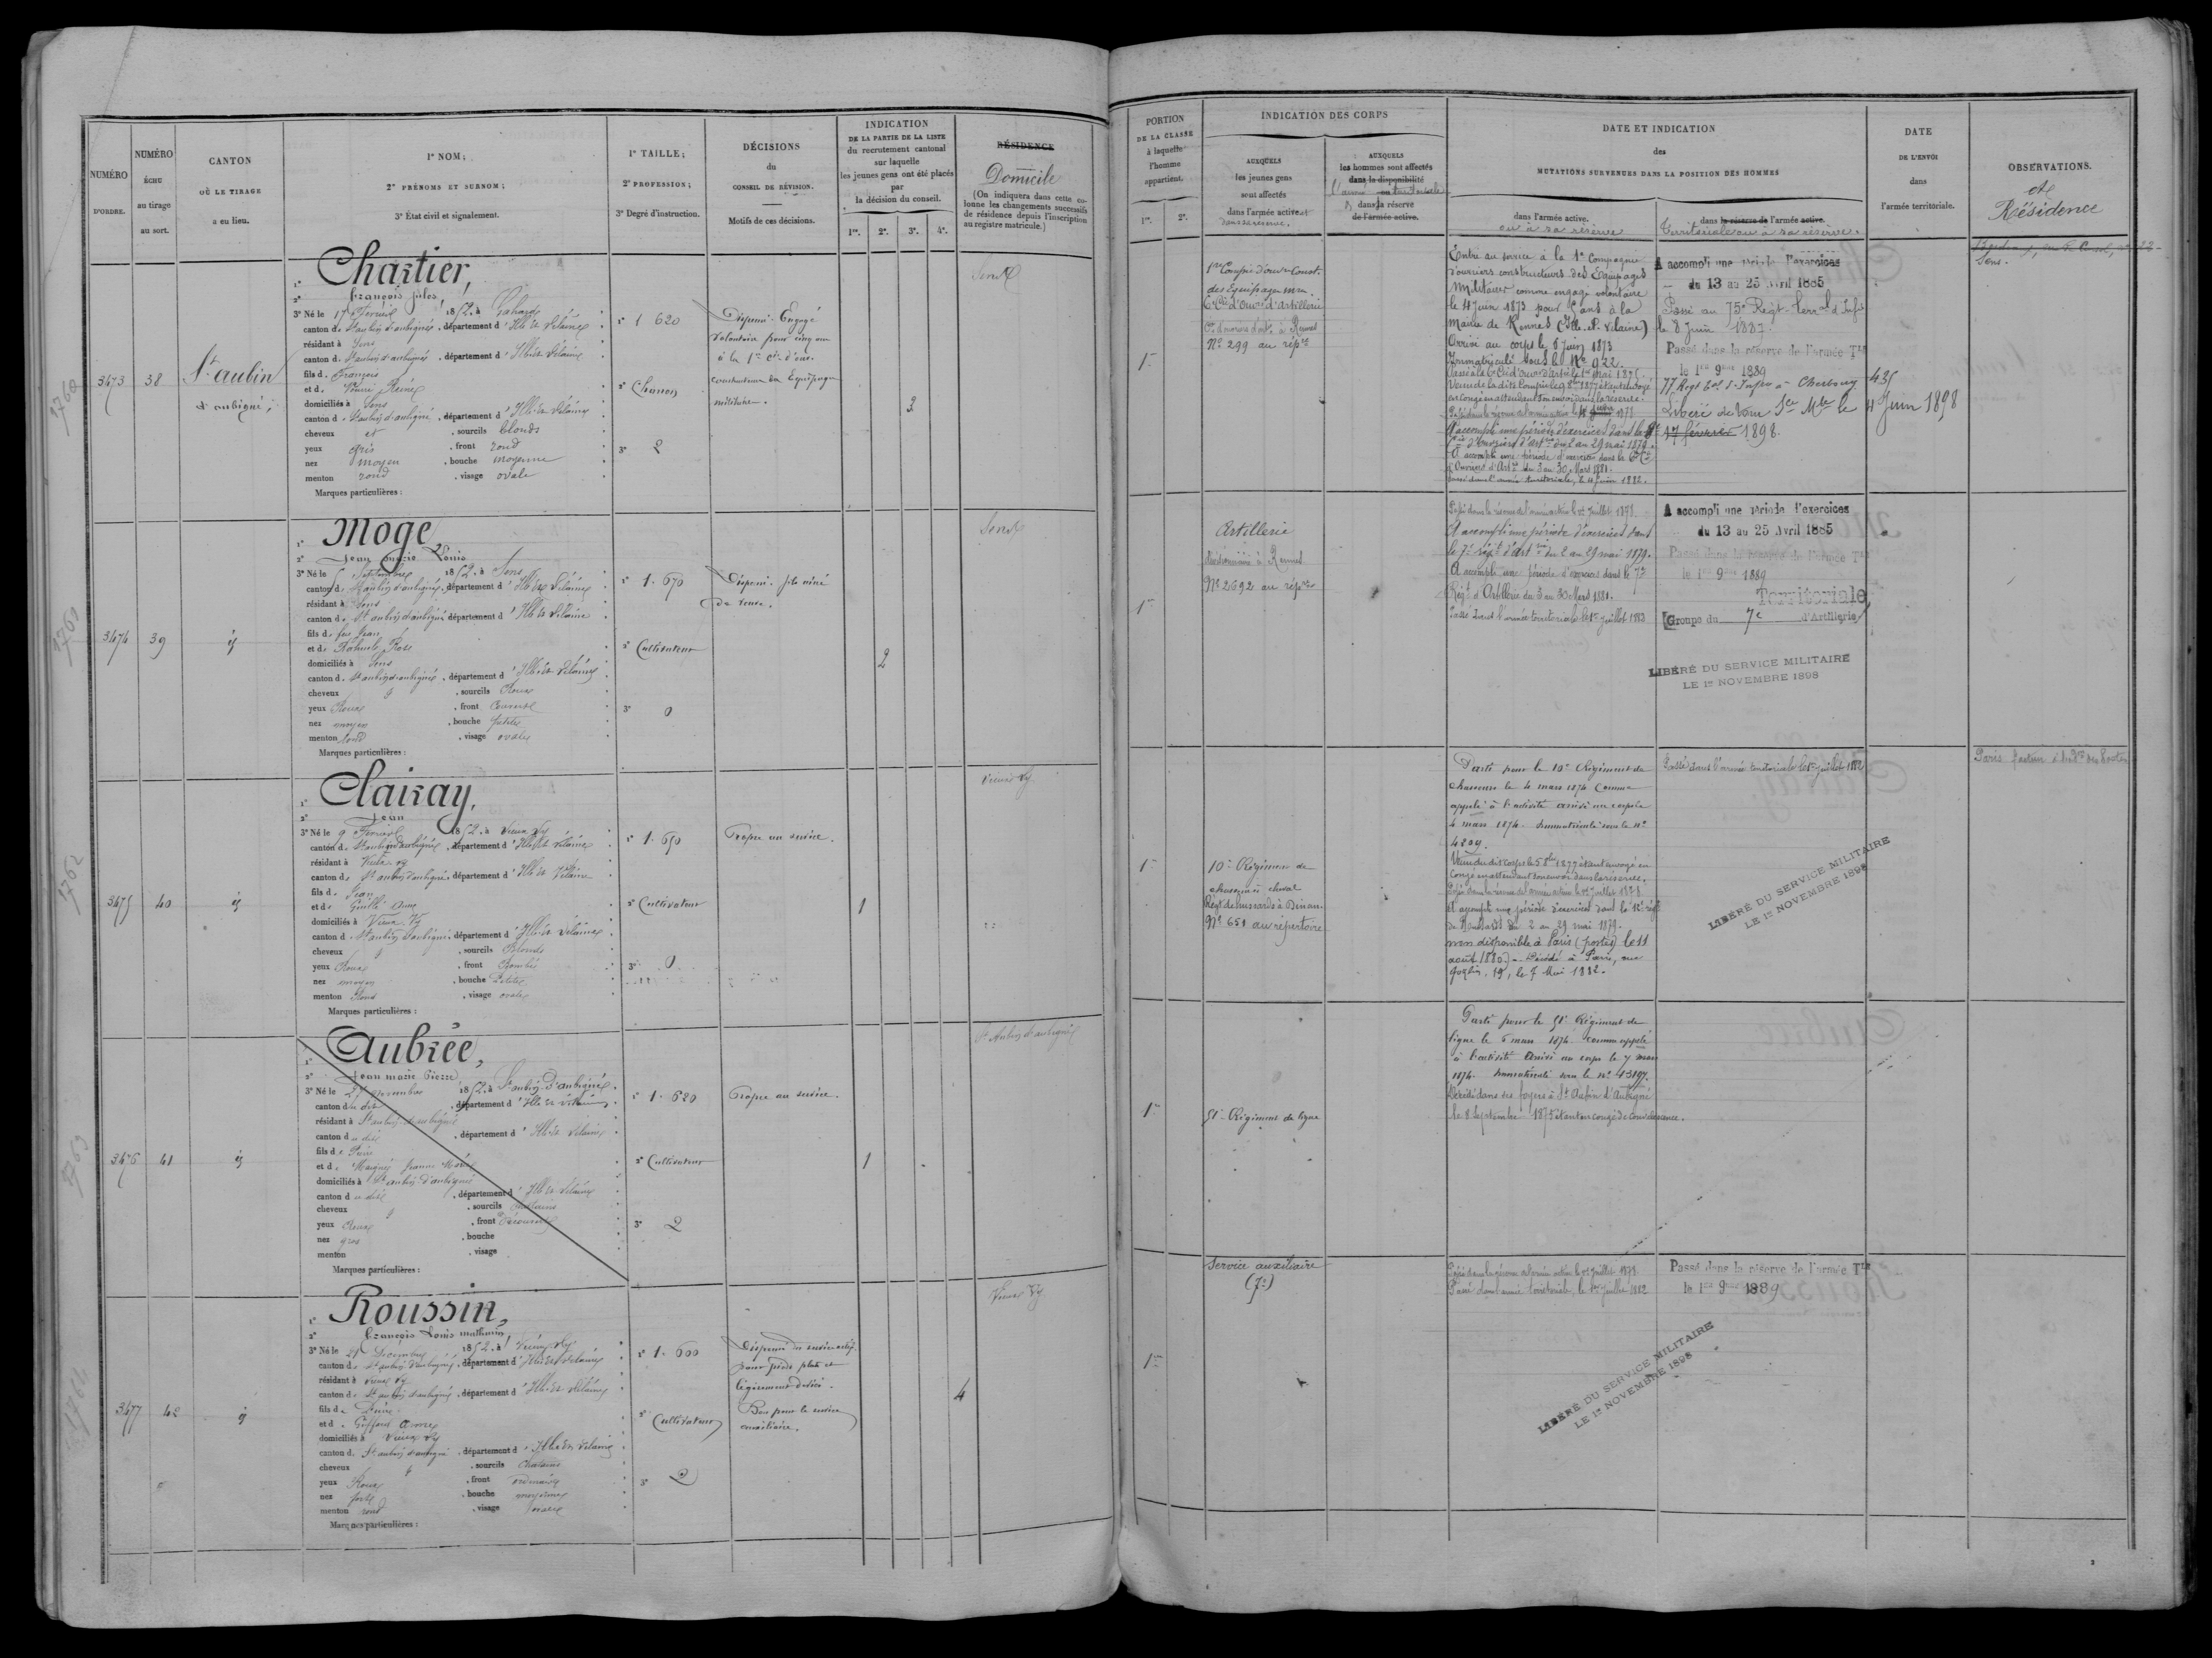 NUMÉRO
D'ORDRE.
NUMÉRO
ÉCHU
au tirage
au sort.
CANTON
OÙ LE TIRAGE
a eu lieu.
1° NOM;
2° PRÉNOMS ET SURNOM;
3° État civil et signalement.
1° TAILLE;
2° PROFESSION;
3° Degré d'instruction.
DÉCISIONS
du
CONSEIL DE RÉVISION.
Motifs de ces décisions.
INDICATION
DE LA PARTIE DE LA LISTE
du recrutement cantonal
sur laquelle
les jeunes gens ont été placés
par
la décision du conseil.
1re. 2e. 3e. 4e.
RÉSIDENCE
Domicile
(On indiquera dans cette co-
lonne les changements successifs
de résidence depuis l'inscription
au registre matricule.)
PORTION
DE LA CLASSE
à laquelle
l'homme
appartient.
1re. 2e.
INDICATION DES CORPS
AUXQUELS
les jeunes gens
sont affectés
dans l'armée active et
dans sa réserve.
AUXQUELS
les hommes sont affectés
dans la disponibilité
ou
dans la réserve
de l'armée active.
DATE ET INDICATION
des
MUTATIONS SURVENUES DANS LA POSITION DES HOMMES
dans l'armée active.
ou à sa réserve
dans la réserve de l'armée active.
Territoriale ou à sa réserve.
DATE
DE L'ENVOI
dans
l'armée territoriale.
OBSERVATIONS.
et
Résidence
1760
3473
38
St aubin
d'aubigné,
1° Chartier,
2° françois jules,
3° Né le 17 Février 1852, à Gahard
canton de St aubin d'aubigné, département d'Ille et Vilaine
résidant à Sens
canton de St aubin d'aubigné, département d'Ille et Vilaine
fils de François
et de
domiciliés à Sens
canton de St aubin d'aubigné, département d'Ille et Vilaine
cheveux et, sourcils blonds
yeux gris, front rond
nez moyen, bouche moyenne
menton rond, visage ovale
Marques particulières :
1° 1 620
2° Charron
3° 2
Dispensé - Engagé
Volontaire pour cinq ans
à la 1re Cie d'ouv.
constructeurs des Equipages
militaires.
3
Sens
1re
1re Compie d'ouvrs Const.
des Equipages mres
6e Cie d'Ouvrs d'artillerie
No 299 au répre
Entré au service à la 1e Compagnie
d'ouvriers constructeurs des Equipages
Militaires comme engagé volontaire
le 4 juin 1873 pour 5 ans à la
Mairie de Rennes (Ille-et-Vilaine)
Arrivé au corps le 8 juin 1873
Immatriculé sous le No 922.
A accompli une période d'exercices dans la 6e
Cie d'Ouvriers d'artrie du 2 au 29 mai 1879.
A accompli une période d'exercices dans la 6e Cie
d'Ouvriers d'Artrie du 3 au 30 Mars 1881.
Passé dans l'armée territoriale, le 4 juin 1882.
A accompli une période d'exercices
du 13 au 25 Avril 1885
Passé au 75e Régt Terral d'Infie
le 8 Juin 1887.
Passé dans la réserve de l'armée Tle
le 1er 9bre 1889
77 Régt d'Infie à Cherbourg 435
Libéré de tout Sce Mre le 4 Juin 1898
17 février 1898.
Sens.
1761
3474
39
id
1° Moge
2° Jean marie Louis
3° Né le 5 Septembre 1852, à Sens
canton de St aubin d'aubigné, département d'Ille et Vilaine
résidant à Sens
canton de St aubin d'aubigné département d'Ille et Vilaine
fils de feu Jean
et de Rose
domiciliés à Sens
canton de St aubin d'aubigné, département d'Ille et Vilaine
cheveux, sourcils Roux
yeux Roux, front Couvert
nez moyen, bouche petite
menton rond, visage ovale
Marques particulières :
1° 1. 670
2° Cultivateur
3° 0
Dispensé. fils aîné
de veuve.
2
Sens
1re
Artillerie
divisionnaire à Rennes
No 2692 au répre
Passé dans la réserve de l'armée active le 1er Juillet 1878.
A accompli une période d'exercices dans
le 7e régt d'artrie du 2 au 29 mai 1879.
A accompli une période d'exercices dans le 7e
Régt d'Artillerie du 3 au 30 Mars 1881.
Passé dans l'armée territoriale le 1er juillet 1883
A accompli une période d'exercices
du 13 au 25 Avril 1885
Passé dans la réserve de l'armée Tle
le 1er 9bre 1889
Territoriale
Groupe du 7e d'Artillerie
LIBÉRÉ DU SERVICE MILITAIRE
LE 1er NOVEMBRE 1898
1762
3475
40
id
1° Clairay,
2° Jean
3° Né le 9 Février 1852, à Vieux Vy
canton de St aubin d'aubigné, département d'Ille et Vilaine
résidant à Vieux-vy
canton de St aubin d'aubigné, département d'Ille et Vilaine
fils de Jean
et de Guillé Anne
domiciliés à Vieux Vy
canton de St aubin d'aubigné, département d'Ille et Vilaine
cheveux, sourcils Blonds
yeux Roux, front Bombé
nez moyen, bouche Petite
menton Rond, visage ovale
Marques particulières :
1° 1. 650
2° Cultivateur
3° 0
Propre au service.
1
Vieux Vy
1re
10e Régiment de
chasseurs à cheval
Régt de hussards à Dinan.
No 651 au répertoire
Parti pour le 10e Régiment de
chasseurs le 4 mars 1874 Comme
appelé à l'activité arrivé au corps le
4 mars 1874. Immatriculé sous le No
4809.
Venu dudit corps le 5 8bre 1877 étant envoyé en
congé en attendant son envoi dans la réserve.
Passé dans la réserve de l'armée active le 1er Juillet 1878
A accompli une période d'exercices dans le 12e régt
de Hussards du 2 au 29 mai 1879.
non disponible à Paris (postes) le 11
août 1880. - Décédé à Paris, rue
19, le 7 Mai 1882.
Passé dans l'armée territoriale le 1er juillet 1882
LIBÉRÉ DU SERVICE MILITAIRE
LE 1er NOVEMBRE 1898
Paris facteur des Postes
1763
3476
41
id
1° Aubrée,
2° Jean marie Pierre
3° Né le 27 novembre 1852, à St aubin-D'aubigné
canton du dit, département d'Ille et vilaine
résidant à St aubin d'aubigné
canton du dit, département d'Ille et Vilaine
fils de
et de Marie
domiciliés à St aubin d'aubigné
canton du dit, département d'Ille et Vilaine
cheveux, sourcils chatains
yeux Roux, front découvert
nez gros, bouche
menton, visage
Marques particulières :
1° 1. 620
2° Cultivateur
3° 2
Propre au service.
1
St Aubin d'aubigné
1re
51e Régiment de ligne
Parti pour le 51e Régiment de
ligne le 6 mars 1874 comme appelé
à l'activité Arrivé au corps le 7 mars
1874. Immatriculé sous le No 43197.
Décédé dans ses foyers à St Aubin d'Aubigné
le 8 Septembre 1875 étant en congé de convalescence.
1764
3477
42
id
1° Roussin,
2° François Louis mathurin,
3° Né le 21 Décembre 1852, à Vieux-Vy
canton de St aubin d'aubigné, département d'Ille et Vilaine
résidant à Vieux Vy
canton de St aubin d'aubigné, département d'Ille et Vilaine
fils de
et de Giffard anne
domiciliés à Vieux Vy
canton de St aubin d'aubigné, département d'Ille et Vilaine
cheveux, sourcils Chatains
yeux Roux, front ordinaire
nez fort, bouche moyenne
menton rond, visage ovale
Marques particulières :
1° 1. 600
2° Cultivateur
3° 2
Dispensé du service actif
pour pieds plats et
légèrement déviés.
Bon pour le service
auxiliaire.
4
Vieux Vy
1re
Service auxiliaire
(7e)
Passé dans la réserve de l'armée active le 1er Juillet 1878
Passé dans l'armée territoriale, le 1er Juillet 1882
Passé dans la réserve de l'armée Tle
le 1er 9bre 1889
LIBÉRÉ DU SERVICE MILITAIRE
LE 1er NOVEMBRE 1898